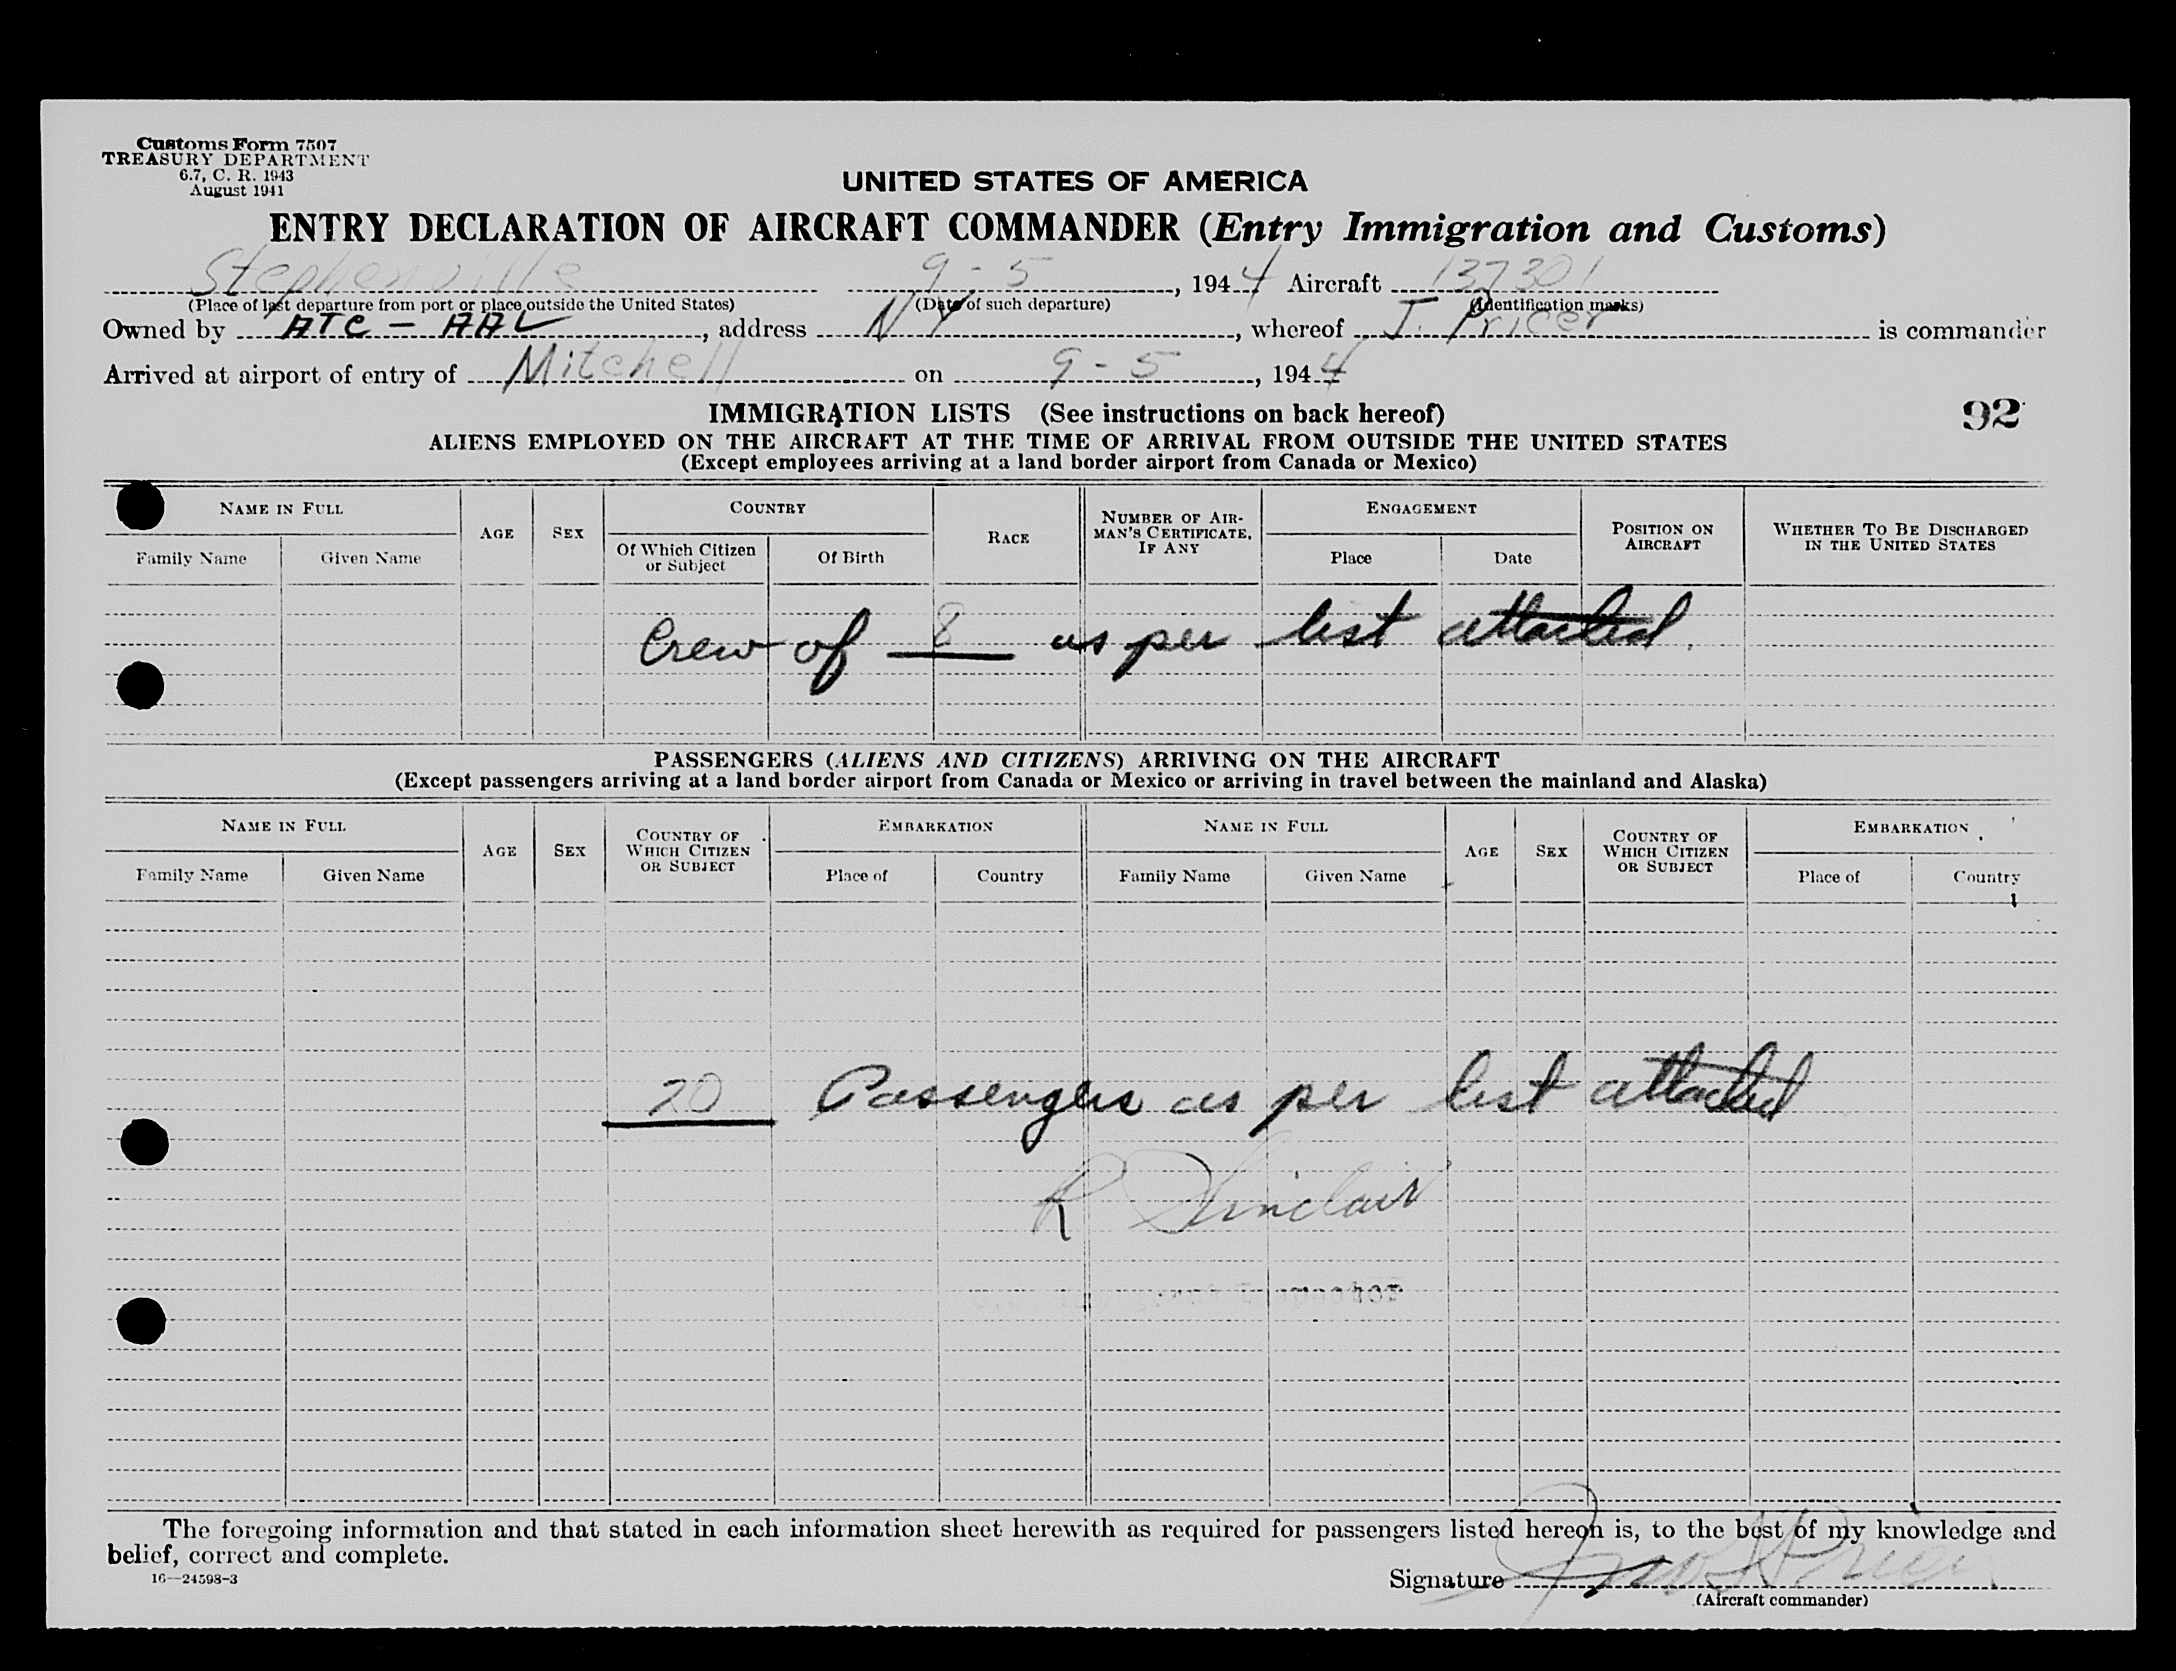 Customs Form 7507
TREASURY DEPARTMENT
6.7, C. R. 1943
August 1941
UNITED STATES OF AMERICA
ENTRY DECLARATION OF AIRCRAFT COMMANDER (Entry Immigration and Customs)
Stephenville 9-5, 1944 Aircraft 137301
(Place of last departure from port or place outside the United States) (Date of such departure) (Identification marks)
Owned by ATC - AAL, address NY, whereof J. Pricer is commander
Arrived at airport of entry of Mitchell on 9-5, 1944
IMMIGRATION LISTS (See instructions on back hereof) 92
ALIENS EMPLOYED ON THE AIRCRAFT AT THE TIME OF ARRIVAL FROM OUTSIDE THE UNITED STATES
(Except employees arriving at a land border airport from Canada or Mexico)
NAME IN FULL AGE SEX COUNTRY RACE NUMBER OF AIRMAN'S CERTIFICATE, IF ANY ENGAGEMENT POSITION ON AIRCRAFT WHETHER TO BE DISCHARGED IN THE UNITED STATES
Family Name Given Name Of Which Citizen or Subject Of Birth Place Date
Crew of 8 as per list attached.
PASSENGERS (ALIENS AND CITIZENS) ARRIVING ON THE AIRCRAFT
(Except passengers arriving at a land border airport from Canada or Mexico or arriving in travel between the mainland and Alaska)
NAME IN FULL AGE SEX COUNTRY OF WHICH CITIZEN OR SUBJECT EMBARKATION NAME IN FULL AGE SEX COUNTRY OF WHICH CITIZEN OR SUBJECT EMBARKATION
Family Name Given Name Place of Country Family Name Given Name Place of Country
20 Passengers as per list attached
R Sinclair
The foregoing information and that stated in each information sheet herewith as required for passengers listed hereon is, to the best of my knowledge and
belief, correct and complete.
16—24598-3
Signature
(Aircraft commander)